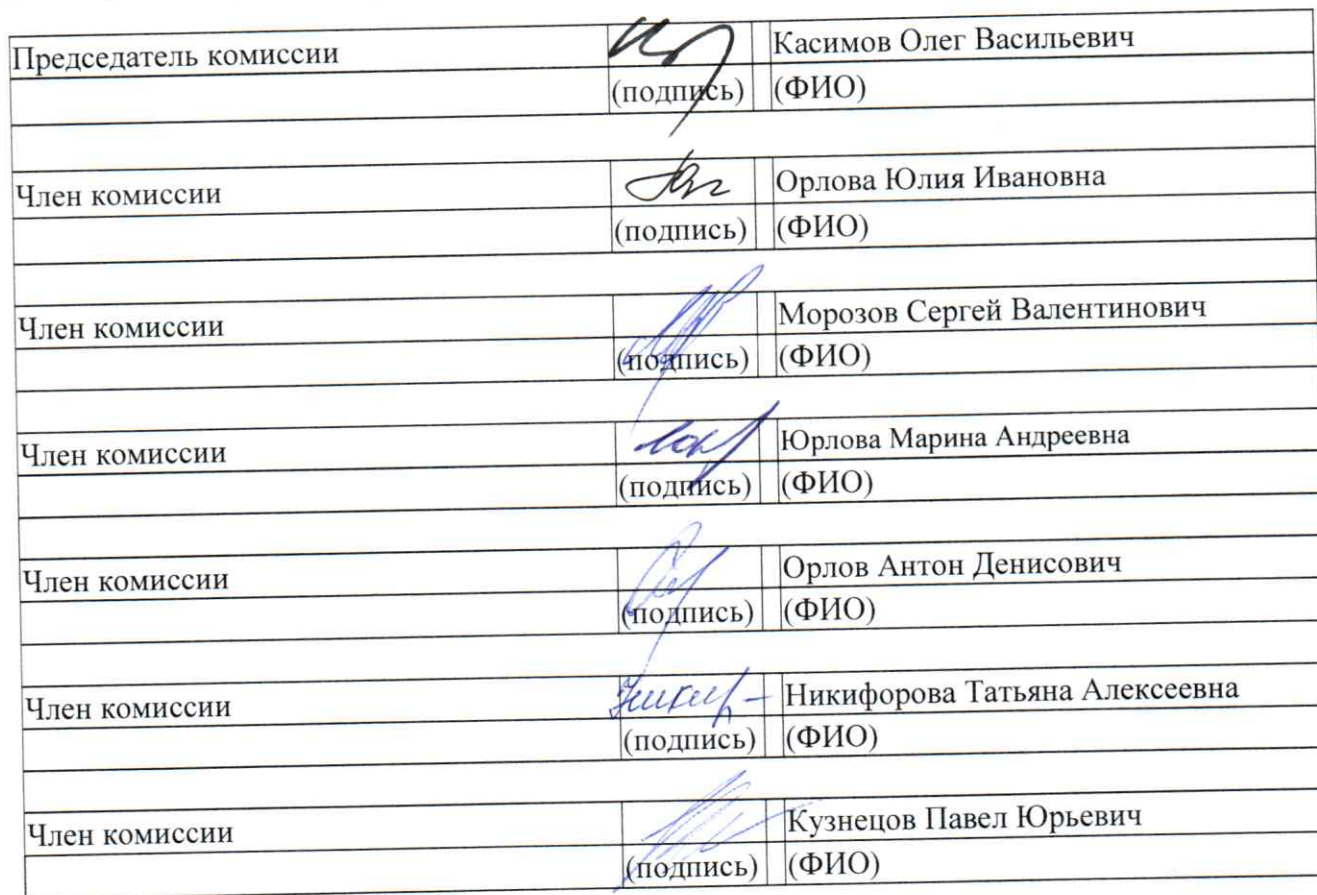 Председатель комиссии Касимов Олег Васильевич
(подпись) (ФИО)
Член комиссии Орлова Юлия Ивановна
(подпись) (ФИО)
Член комиссии Морозов Сергей Валентинович
(подпись) (ФИО)
Член комиссии Юрлова Марина Андреевна
(подпись) (ФИО)
Член комиссии Орлов Антон Денисович
(подпись) (ФИО)
Член комиссии Никифорова Татьяна Алексеевна
(подпись) (ФИО)
Член комиссии Кузнецов Павел Юрьевич
(подпись) (ФИО)